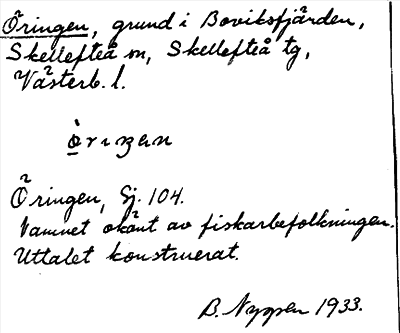 Öringen, grund i Boviksfjärden,
Skellefteå sn, Skellefteå tg,
Västerb. l.
òriŋen
Öringen, Sj. 104.
Namnet okänt av fiskarbefolkningen.
Uttalet konstruerat.
B. Nygren 1933.